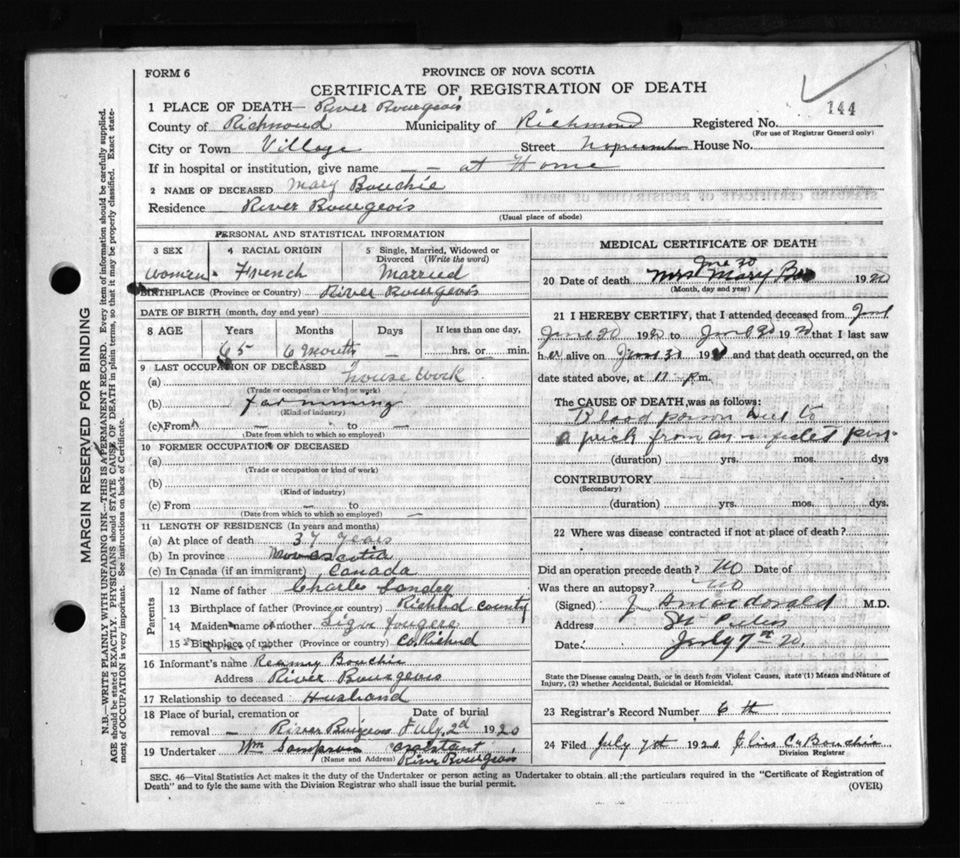 FORM 6
PROVINCE OF NOVA SCOTIA
CERTIFICATE OF REGISTRATION OF DEATH
144
1 PLACE OF DEATH— River Bourgeois
County of Richmond Municipality of Richmond Registered No.
(For use of Registrar General only)
City or Town Village Street House No.
If in hospital or institution, give name — at Home
2 NAME OF DECEASED Mary Bouchie
Residence River Bourgeois
(Usual place of abode)
PERSONAL AND STATISTICAL INFORMATION
3 SEX 4 RACIAL ORIGIN 5 Single, Married, Widowed or Divorced (Write the word)
women French Married
BIRTHPLACE (Province or Country) River Bourgeois
DATE OF BIRTH (month, day and year)
8 AGE Years Months Days If less than one day,
65 6 months — hrs. or min.
9 LAST OCCUPATION OF DECEASED
(a) house work
(Trade or occupation or kind of work)
(b) farmining
(Kind of industry)
(c) From — to —
(Date from which to which so employed)
10 FORMER OCCUPATION OF DECEASED
(a)
(Trade or occupation or kind of work)
(b)
(Kind of industry)
(c) From — to
(Date from which to which so employed) —
11 LENGTH OF RESIDENCE (In years and months)
(a) At place of death 37 years
(b) In province Nova Scotia
(c) In Canada (if an immigrant) Canada
Parents
12 Name of father Charles Landry
13 Birthplace of father (Province or country) Richmd County
14 Maiden name of mother Liza fougere
15 Birthplace of mother (Province or Country) Co. Richmd
16 Informant's name Bouchie
Address River Bourgeois
17 Relationship to deceased Husband
18 Place of burial, cremation or removal — River Bourgeois Date of burial July 2d 1920
19 Undertaker Wm Sampson assistant
(Name and Address) River Bourgeois
MEDICAL CERTIFICATE OF DEATH
June 30
20 Date of death Mrs Mary 1920
(Month, day and year)
21 I HEREBY CERTIFY, that I attended deceased from
June 30 1920 to June 30 1920 that I last saw
her alive on June 19 and that death occurred, on the
date stated above, at 11 Pm.
The CAUSE OF DEATH was as follows:
Blood poison due to
a prick from an infected pin
(duration) yrs. mos. dys
CONTRIBUTORY
(Secondary)
(duration) yrs. mos. dys.
22 Where was disease contracted if not at place of death?
Did an operation precede death? No Date of
Was there an autopsy? No
(Signed) J A Macdonald M.D.
Address St Peters
Date: July 7th 20.
State the Disease causing Death, or in death from Violent Causes, state (1) Means and Nature of Injury, (2) whether Accidental, Suicidal or Homicidal.
23 Registrar's Record Number 6 th
24 Filed July 7th 1920 Bouchie
Division Registrar
SEC. 46—Vital Statistics Act makes it the duty of the Undertaker or person acting as Undertaker to obtain all the particulars required in the "Certificate of Registration of
Death" and to fyle the same with the Division Registrar who shall issue the burial permit.
(OVER)
MARGIN RESERVED FOR BINDING
N.B.—WRITE PLAINLY WITH UNFADING INK—THIS IS A PERMANENT RECORD. Every item of information should be carefully supplied.
AGE should be stated EXACTLY. PHYSICIANS should STATE CAUSE OF DEATH in plain terms, so that it may be properly classified. Exact statement of OCCUPATION is very important. See instructions on back of Certificate.